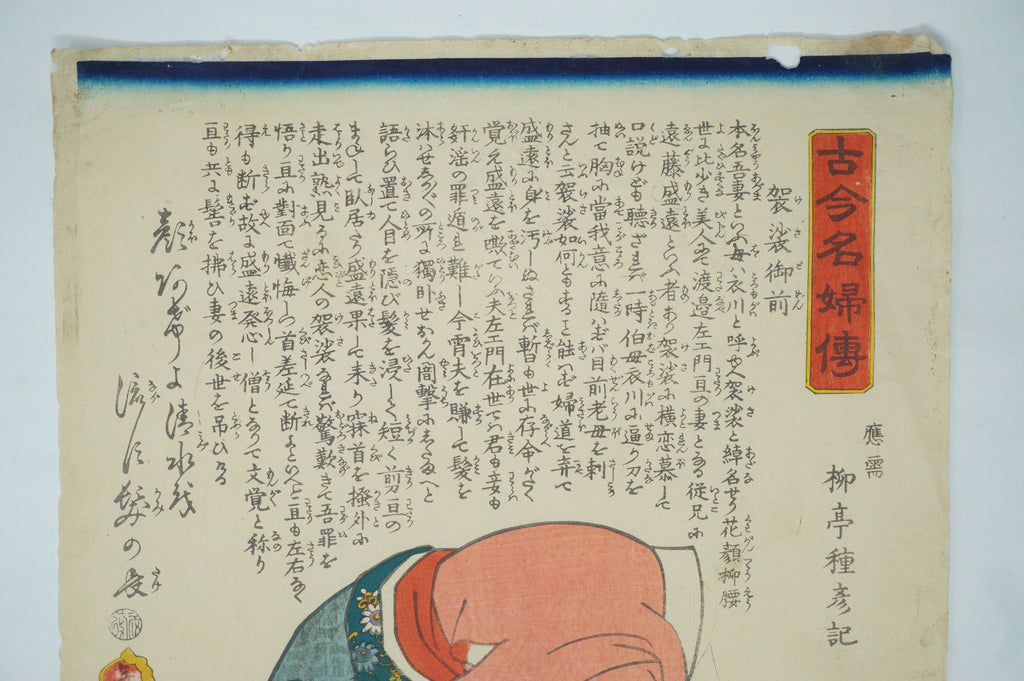 古今名婦傳
應需
柳亭種彦記
袈裟御前
本名吾妻といふ母ハ衣川と呼や人袈裟と綽名せり花顔柳腰
世に比少き美人にて渡邉左エ門亘の妻となる従兄に
遠藤盛遠といふ者あり袈裟に横恋慕して
口説けども聴ざれバ一時伯母衣川に逼り刀を
抽て胸に當我意に隨ハずバ目前老母を刺
さんと云袈裟如何ともすること能ハず婦道を弃て
盛遠に身を汚しぬされバ暫も世に存命がたく
覚え盛遠を欺ていふ夫左エ門在世てハ君も妾も
奸淫の罪遁れ難し今宵夫を賺して髪を
沐ハせしか〴〵の所に獨卧せおかん闇撃にしたまへと
語らひ置て人目を隠び髪を浸して短く剪亘の
まねして臥居たり盛遠果して来り寐首を掻外に
走出熟見るに恋人の袈裟なれバ驚歎きて吾罪を
悟り亘に對面て懺悔し首差延て断よといへど亘も左右なく
得も断ず故に盛遠発心し僧となりて文覚と称り
亘も共に髻を拂ひ妻の後世を吊ひける
顔
よ清水
髪の長